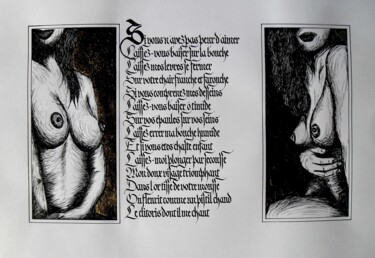 Si vous n'avez pas peur d'aimer
Laissez-vous baiser sur la bouche
Laissez mes levres se fermer
Sur votre chair franche et farouche
Si vous comprenez mes desseins
Laissez-vous baiser o timide
Sur vos epaules sur vos seins
Laissez errer ma bouche humide
Et si vous etes chaste enfant
Laissez-moi plonger par secousse
Mon doux visage triomphant
Dans l'or tisse de votre mousse
Ou fleurit comme un pistil chand
Le clitoris dont il me chaut